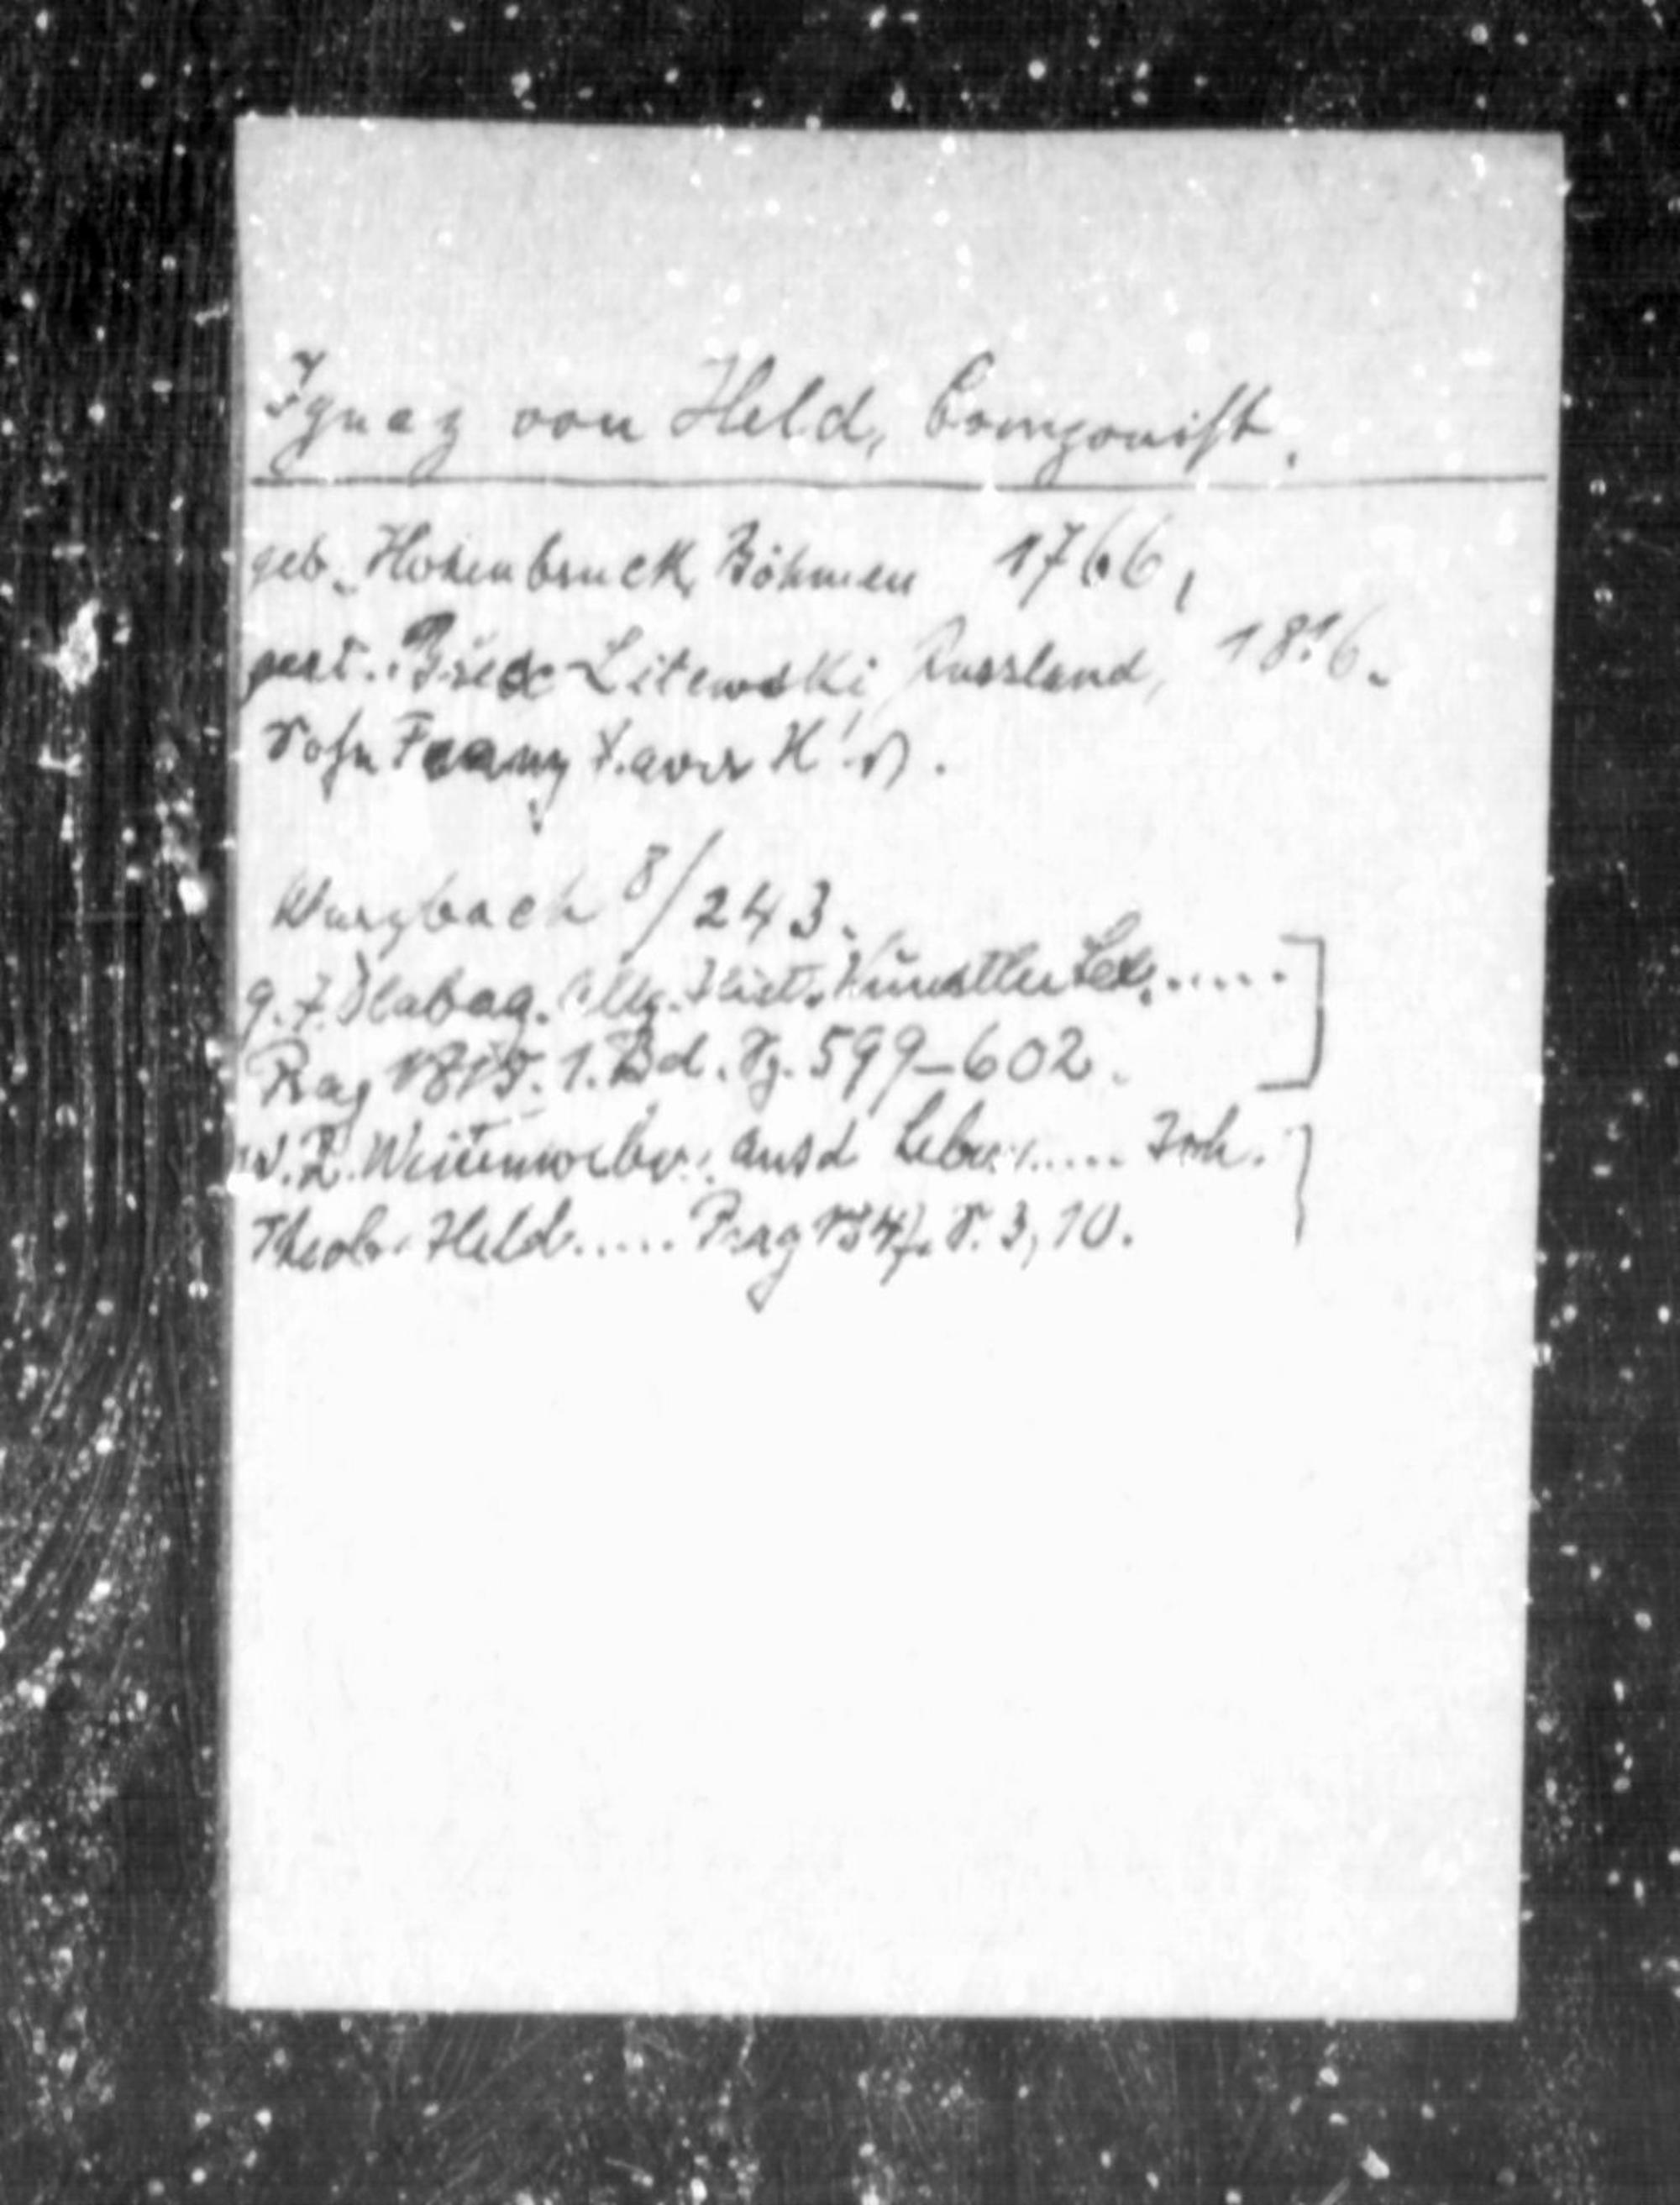 Ignaz von Held, Componist.
geb. Hohenbruck, Böhmen 1766,
gest. Brzesc Litewski, Russland, 1816.
Sohn Franz Xaver H's.
Wurzbach 8/243.
g. J. Dlabacz. Allg. Hist. Künstler Lex. .....
Prag 1815. 1. Bd. Sp. 599–602.
W. R. Weitenweber, aus d Leben ..... Joh.
Theob. Held ..... Prag 1847. S. 3, 10.